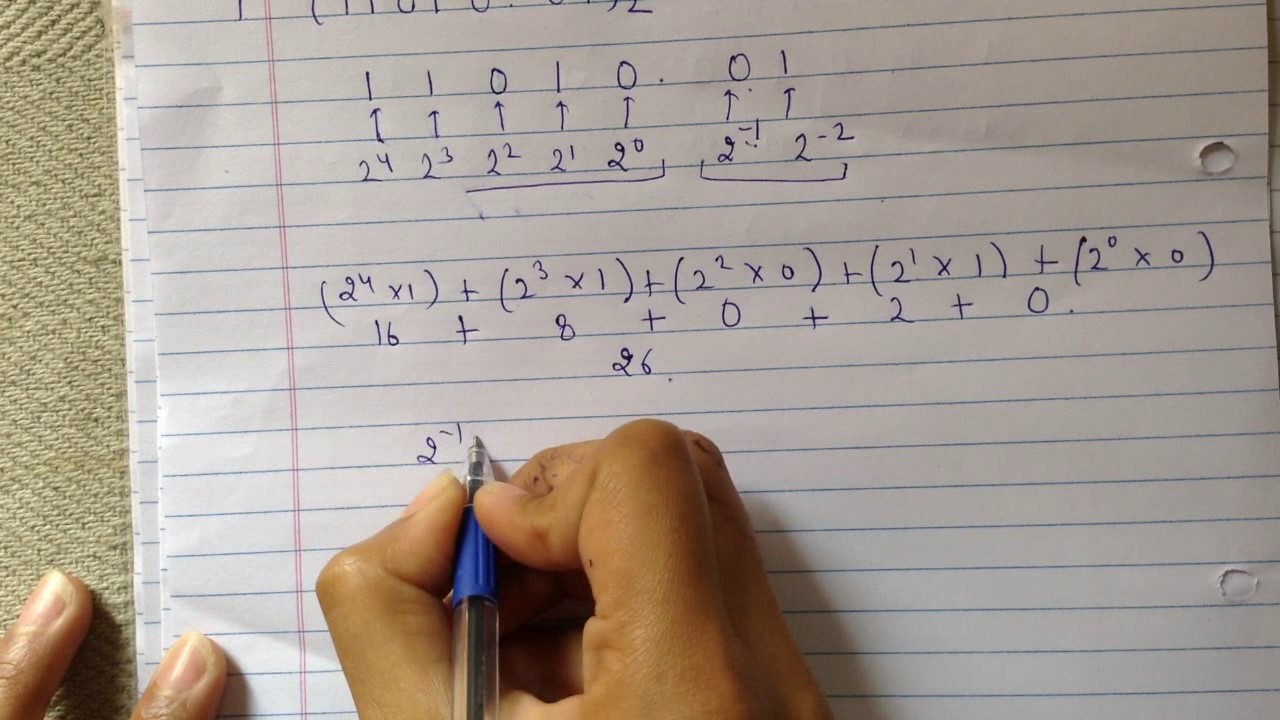 1 1 0 1 0 . 0 1
↑ ↑ ↑ ↑ ↑ ↑ ↑
2⁴ 2³ 2² 2¹ 2⁰ 2⁻¹ 2⁻²
(2⁴ × 1) + (2³ × 1) + (2² × 0) + (2¹ × 1) + (2⁰ × 0)
16 + 8 + 0 + 2 + 0.
26.
2⁻¹